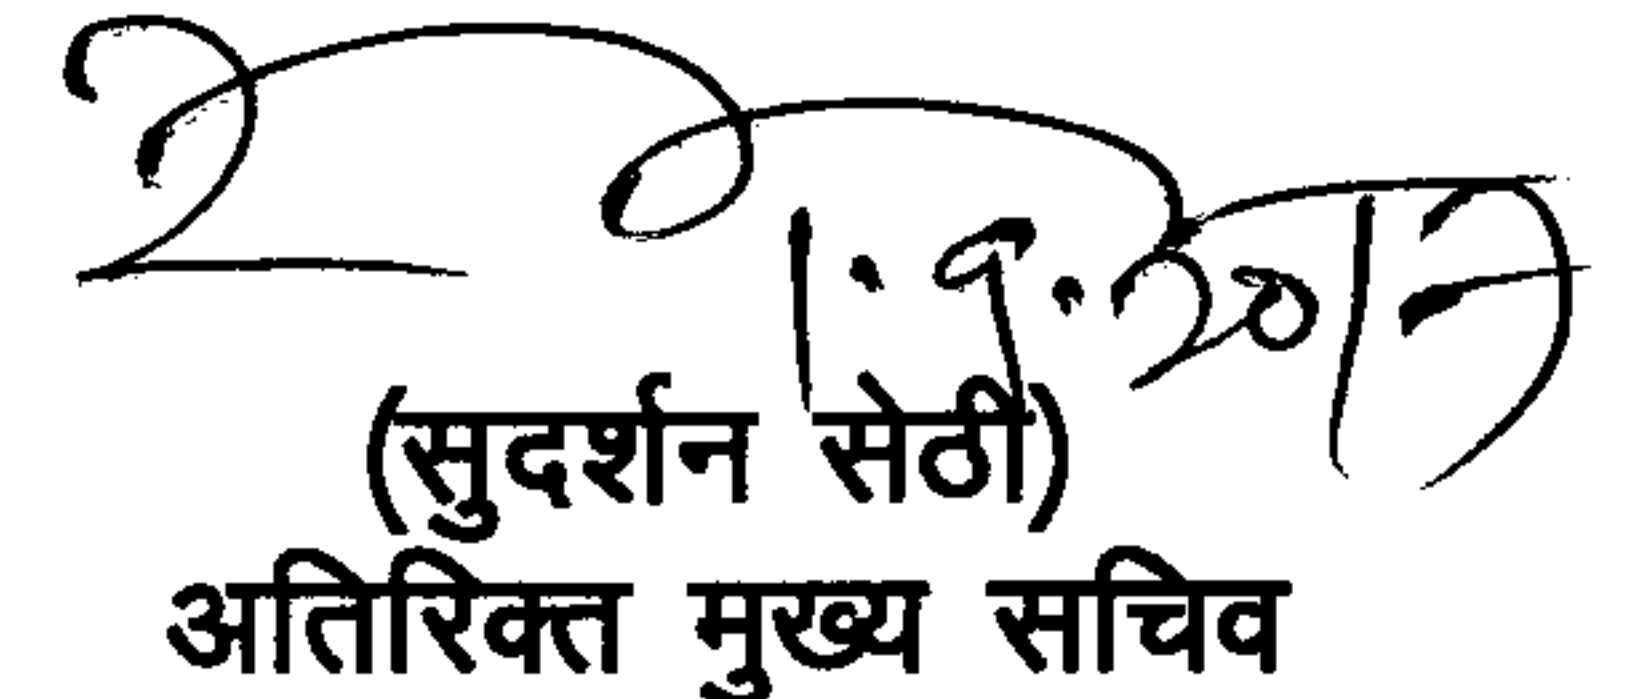 1.9.2017
(सुदर्शन सेठी)
अतिरिक्त मुख्य सचिव